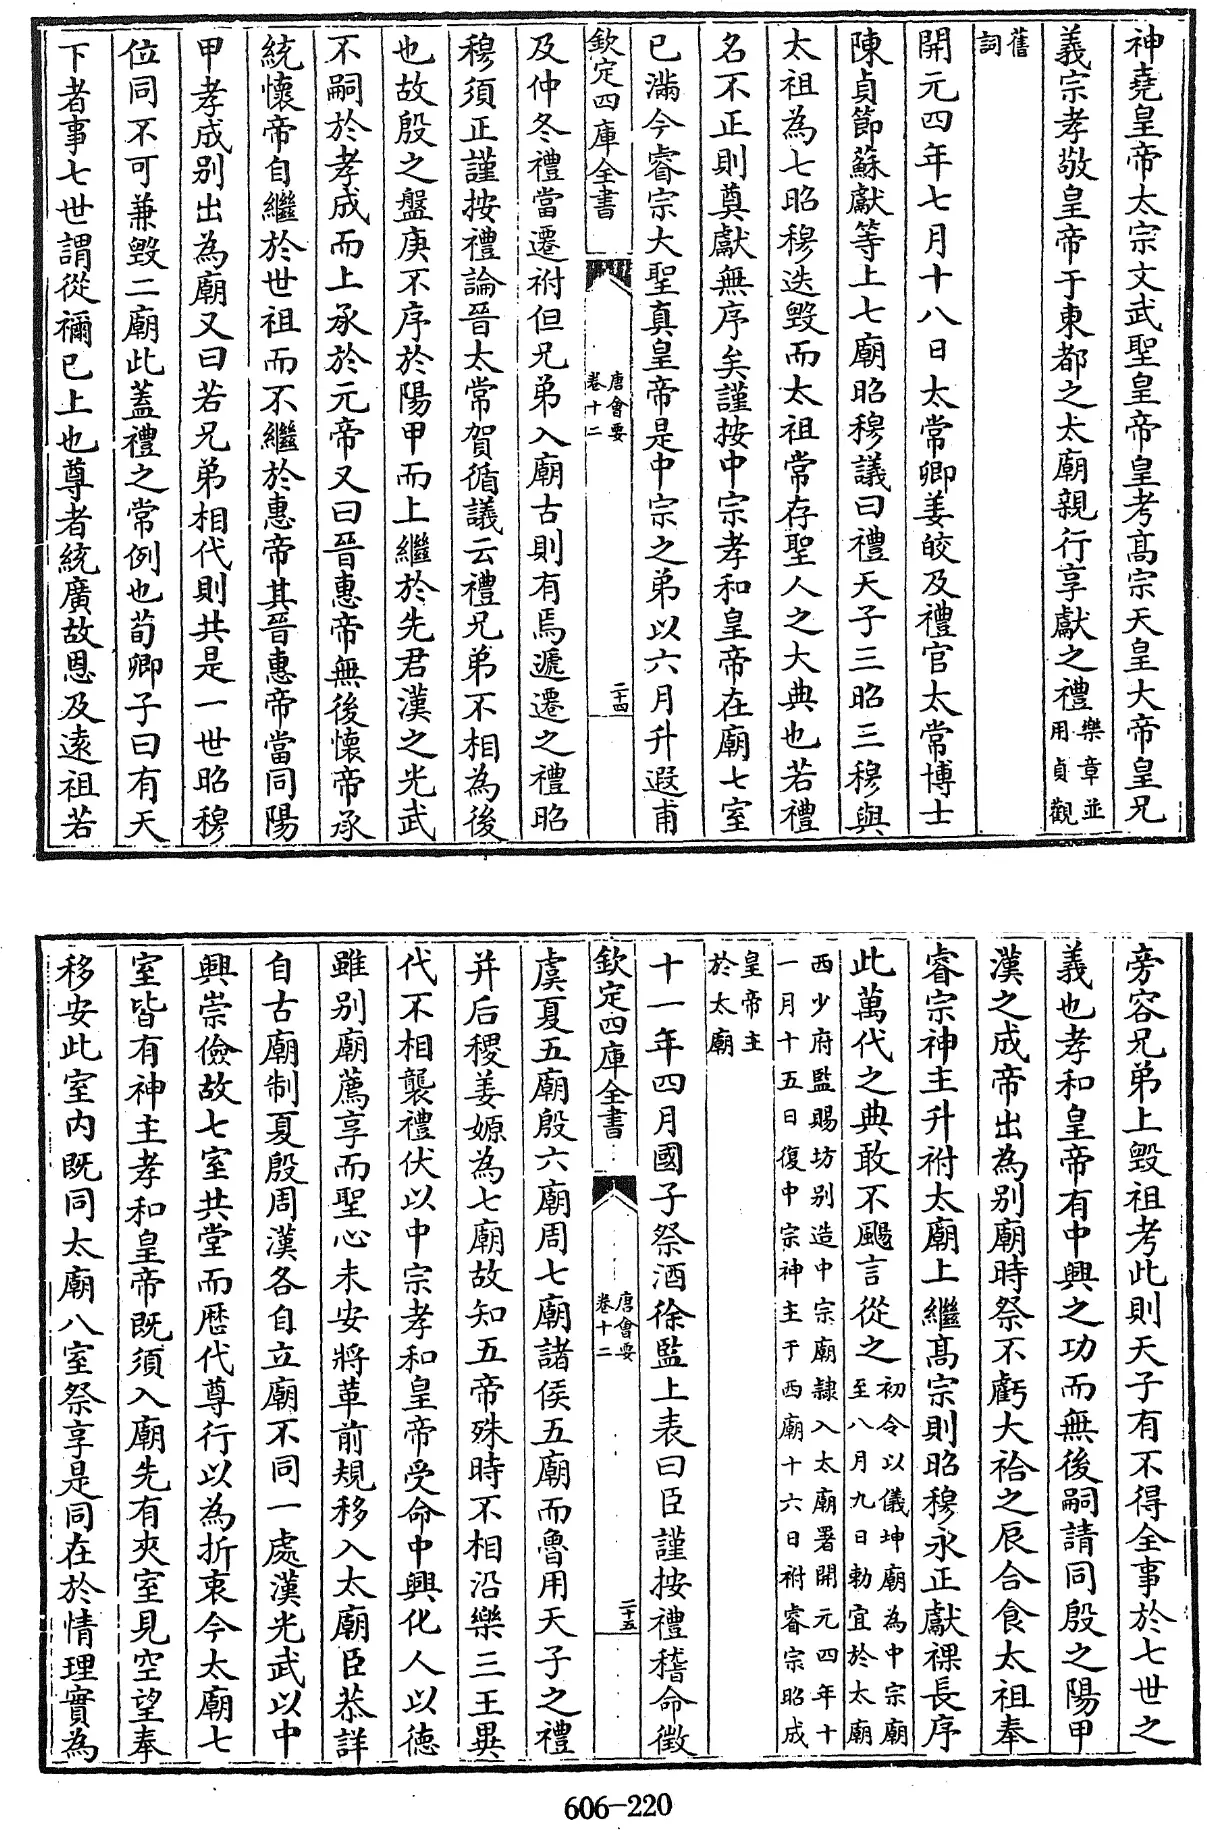 神堯皇帝太宗文武聖皇帝皇考髙宗天皇大帝皇兄
義宗孝敬皇帝于東都之太廟親行享獻之禮樂章並用貞觀
舊詞
開元四年七月十八日太常卿姜皎及禮官太常博士
陳貞節蘇獻等上七廟昭穆議曰禮天子三昭三穆與
太祖為七昭穆迭毀而太祖常存聖人之大典也若禮
名不正則奠獻無序矣謹按中宗孝和皇帝在廟七室
已滿今睿宗大聖真皇帝是中宗之弟以六月升遐甫
欽定四庫全書
唐會要
卷十二
二十四
及仲冬禮當遷祔但兄弟入廟古則有焉遞遷之禮昭
穆須正謹按禮論晉太常賀循議云禮兄弟不相為後
也故殷之盤庚不序於陽甲而上繼於先君漢之光武
不嗣於孝成而上承於元帝又曰晉惠帝無後懷帝承
統懷帝自繼於世祖而不繼於惠帝其晉惠帝當同陽
甲孝成别出為廟又曰若兄弟相代則共是一世昭穆
位同不可兼毀二廟此蓋禮之常例也荀卿子曰有天
下者事七世謂從禰已上也尊者統廣故恩及逺祖若
旁容兄弟上毀祖考此則天子有不得全事於七世之
義也孝和皇帝有中興之功而無後嗣請同殷之陽甲
漢之成帝出為别廟時祭不虧大祫之辰合食太祖奉
睿宗神主升祔太廟上繼髙宗則昭穆永正獻祼長序
此萬代之典敢不颺言從之初令以儀坤廟為中宗廟至八月九日勅宜於太廟
西少府監賜坊别造中宗廟隷入太廟署開元四年十一月十五日復中宗神主于西廟十六日祔睿宗昭成
皇帝主於太廟
十一年四月國子祭酒徐監上表曰臣謹按禮稽命徵
欽定四庫全書
唐會要
卷十二
二十五
虞夏五廟殷六廟周七廟諸侯五廟而魯用天子之禮
并后稷姜嫄為七廟故知五帝殊時不相沿樂三王異
代不相襲禮伏以中宗孝和皇帝受命中興化人以德
雖别廟薦享而聖心未安將革前規移入太廟臣恭詳
自古廟制夏殷周漢各自立廟不同一處漢光武以中
興崇儉故七室共堂而歴代尊行以為折衷今太廟七
室皆有神主孝和皇帝既須入廟先有夾室見空望奉
移安此室内既同太廟八室祭享是同在於情理實為
606-220